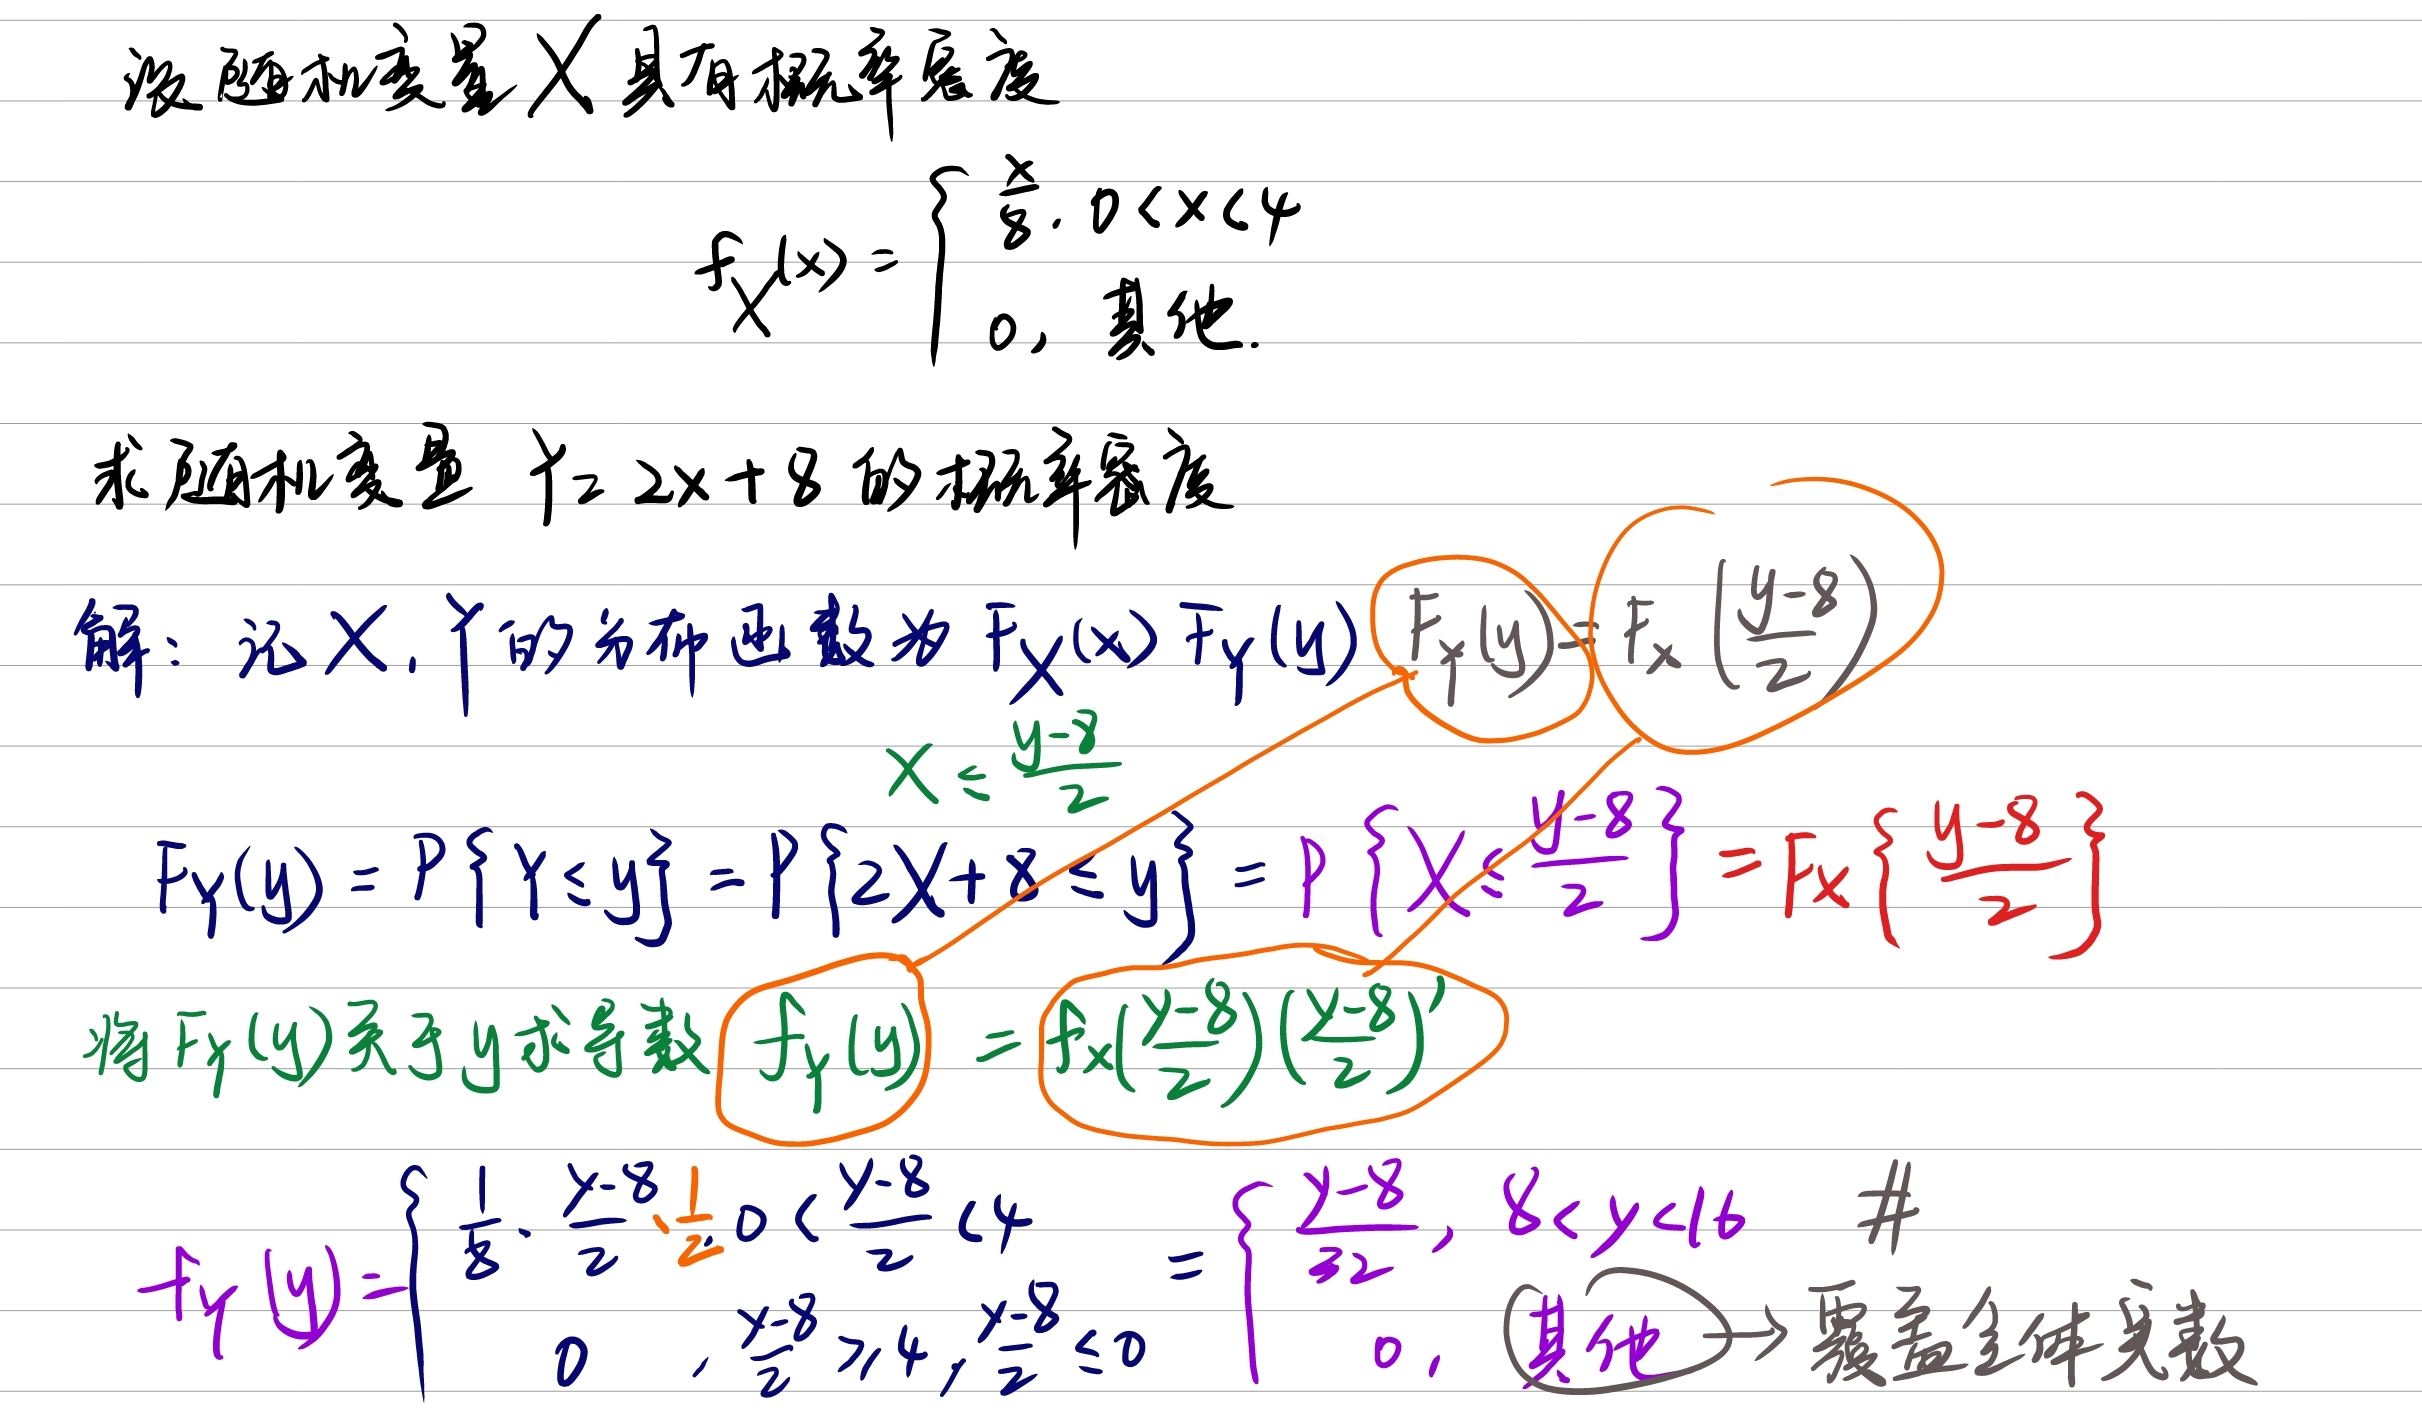 设随机变量X具有概率密度
f_X(x) = { x/8, 0<x<4
0, 其他.
求随机变量 Y=2x+8 的概率密度
解: 记X, Y的分布函数为 F_X(x) F_Y(y) F_Y(y) = F_X((y-8)/2)
X ≤ (y-8)/2
F_Y(y) = P{Y≤y} = P{2X+8≤y} = P{X≤(y-8)/2} = F_X{(y-8)/2}
将F_Y(y)关于y求导数 f_Y(y) = f_X((y-8)/2)((y-8)/2)'
f_Y(y) = { 1/8·(y-8)/2·1/2, 0<(y-8)/2<4 = { (y-8)/32, 8<y<16 #
0, (y-8)/2≥4, (y-8)/2≤0 0, 其他 → 覆盖全体实数